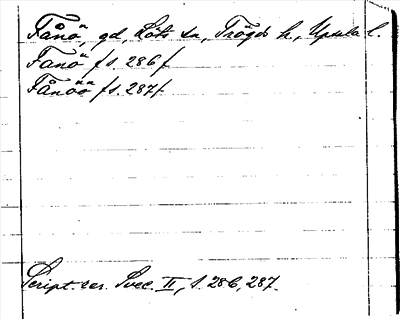 Fånö, gd, Löts sn, Trögds h, Upsala l.
Fanö (s. 286)
Fånöö (s. 287)
Script. rer. Svec. II, s. 286, 287.